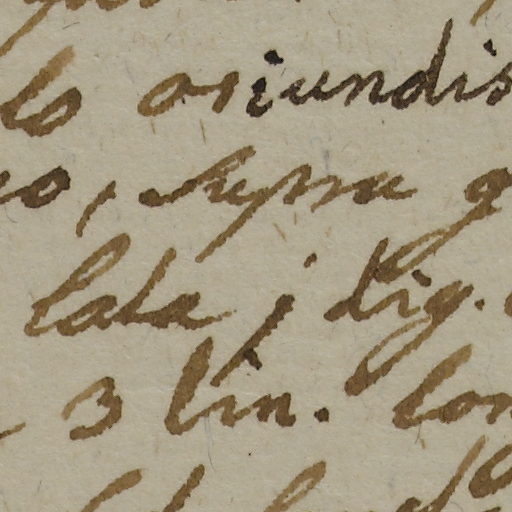 lo oriundis
o, supra g
lata, j dig.
3 lin. lon